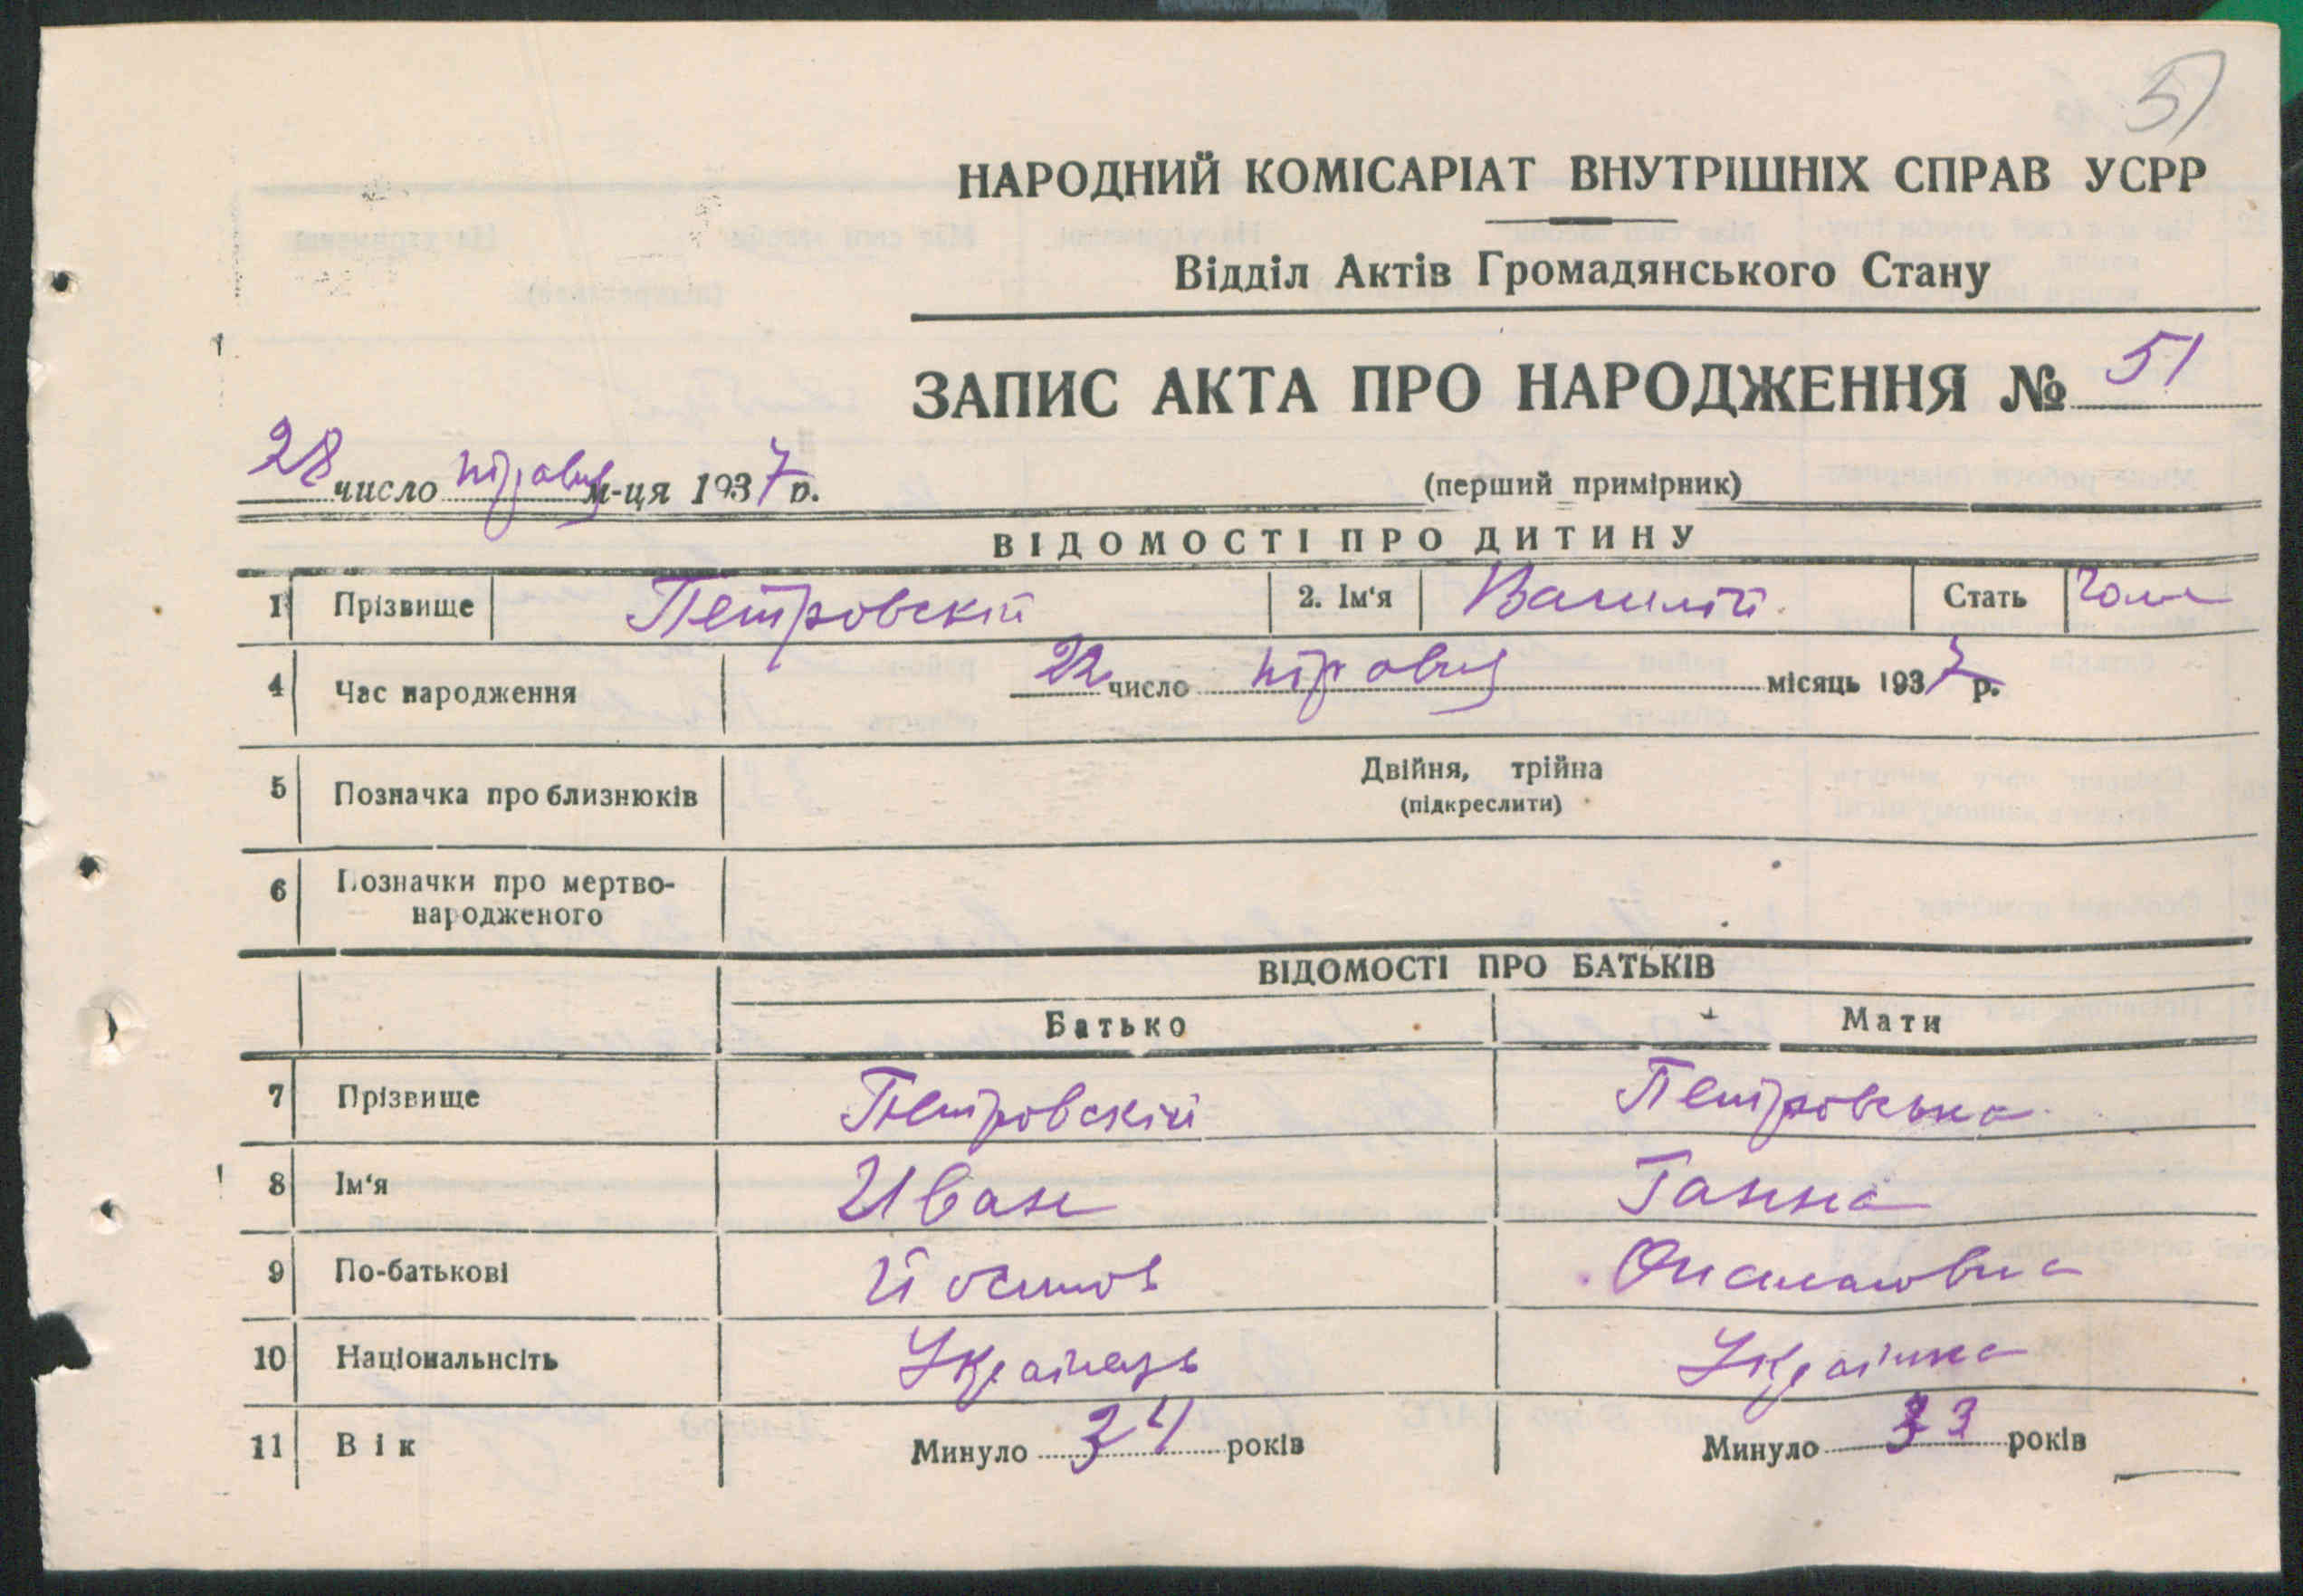 51
НАРОДНИЙ КОМІСАРІАТ ВНУТРІШНІХ СПРАВ УСРР
Відділ Актів Громадянського Стану
ЗАПИС АКТА ПРО НАРОДЖЕННЯ № 51
28 число м-ця 1937 р.
(перший примірник)
ВІДОМОСТІ ПРО ДИТИНУ
1 Прізвище Петровскій 2. Ім'я Василій Стать Чол
4 Час народження 22 число місяць 1937 р.
5 Позначка про близнюків Двійня, трійна
(підкреслити)
6 Позначки про мертво-
народженого
ВІДОМОСТІ ПРО БАТЬКІВ
Батько Мати
7 Прізвище Петровскій Петровська
8 Ім'я Иван Ганна
9 По-батькові Йосипов
10 Національнсіть Українець Українка
11 Вік Минуло 34 років Минуло 33 років